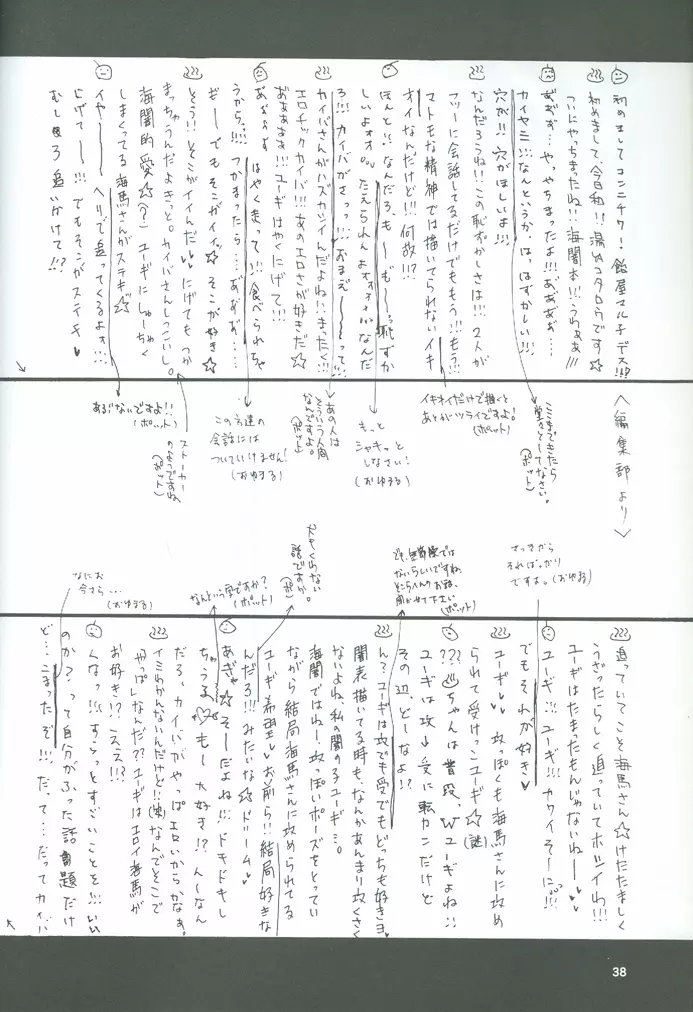 初めましてコンニチワ!飴屋マルチデス!!?
初めまして、今日和!!湯のコタロウです☆
ついにやっちまったね!!海闇本!!!うわぁぁ///
あぁぁ…やっちまったよ!!あぁぁぁ…
カイヤミ!!!なんというか、はっはずかしい!!!
穴が!!穴がほしいよ!!!
なんだろうね!!この恥ずかしさは!!!2人が
フツーに会話してるだけでももう!!!もう!!!
マトモな精神では描いてられないイキ
オイなんだけど!!!何故!!?
ほんと!!なんだろ、もー!もー!っ恥ずか
しいよォォ!!たえられんよォォォ!!なんだ
ろ!!!カイバがさっっ!!!おまえーーって!!
カイバさんがハズカシイんだよね!!まったく!!!
エロチックカイバ!!!あのエロさが好きだ☆
あぁぁぁぁ!!!ユーギはやくにげて!!!
あぁぁぁ はやく走って!!!食べられちゃ
うから…!!!つかまったら…あぁぁぁ……
ぎーでもそこがイイ☆そこが好き☆
とう!!そこがイイんだ♥♥にげてもつか
まっちゃうんだよきっと。カイバさんしつこいし。
海闇的愛☆(?)ユーギにしゅーちゃく
しまくってる海馬さんがステキ☆
イやーーヘリで追ってくるよォ!!!
にげてー!!!でもそこがステキ♥
むしろ追いかけて!!?
〈編集部より〉
ここまできたら
堂々としてなさい。
(ポット)
イキオイだけで描くと
あとがツライですよ!
(ポット)
もっと
シャキっと
しなさい!
(おゆまる)
あの人は
そういう人間
なんですよ。
(ポット)
この方達の
会話には
ついていけません!
(おゆまる)
ストーカーの
ようですね。
(ポット)
あぶないですよ!!
(ポット)
さっきから
そればっかり
ですよ。(おゆまる)
(ポット)
よくわからない
話ですか。
なんという字ですか?
(ポット)
なにお
今さら…
(おゆまる)
追っていてこそ海馬さん☆けたたましく
うざったらしく追っていてホシイわ!!!
ユーギはたまったもんじゃないねーー♥♥
ユーギ!!!ユーギ!!!カワイそーに…!!
でもそれが好き♥
ユーギ♥♥攻っぽくも海馬さんに攻め
られて受けっこユーギ☆(謎)
???ちゃんは普段、Wユーギよね!!
ユーギは攻→受に転カンだけど
その辺、どーなよ!?
ん?ユーギは攻でも受でもどっちも好きヨ♥
闇表描いてる時も、なんかあんまり攻くさく
ないよね、私の闇の子ユーギ…。
海闇ではねー、攻っぽいポーズをとってい
ながら結局海馬さんに攻められてる
ユーギ希望♥お前ら!!結局好きな
んだろ!!!みたいな☆ドリーム♥
あぎゃ☆そーだよね!!!ドキドキし
ちゃうる♥もー大好き!?んーなん
だろ、カイバがやっぱエロいからかなぁ。
イミわかんないんだけど!!(笑)なんでそこで
やっぱしなんだ??ユーギはエロイ海馬が
お好き!?ええ!!?
くなっ!!!すらっとすごいことを!!!いい
のか?って自分がふった話題だけ
ど…こまったぞ!!!だって…だってカイバ
38